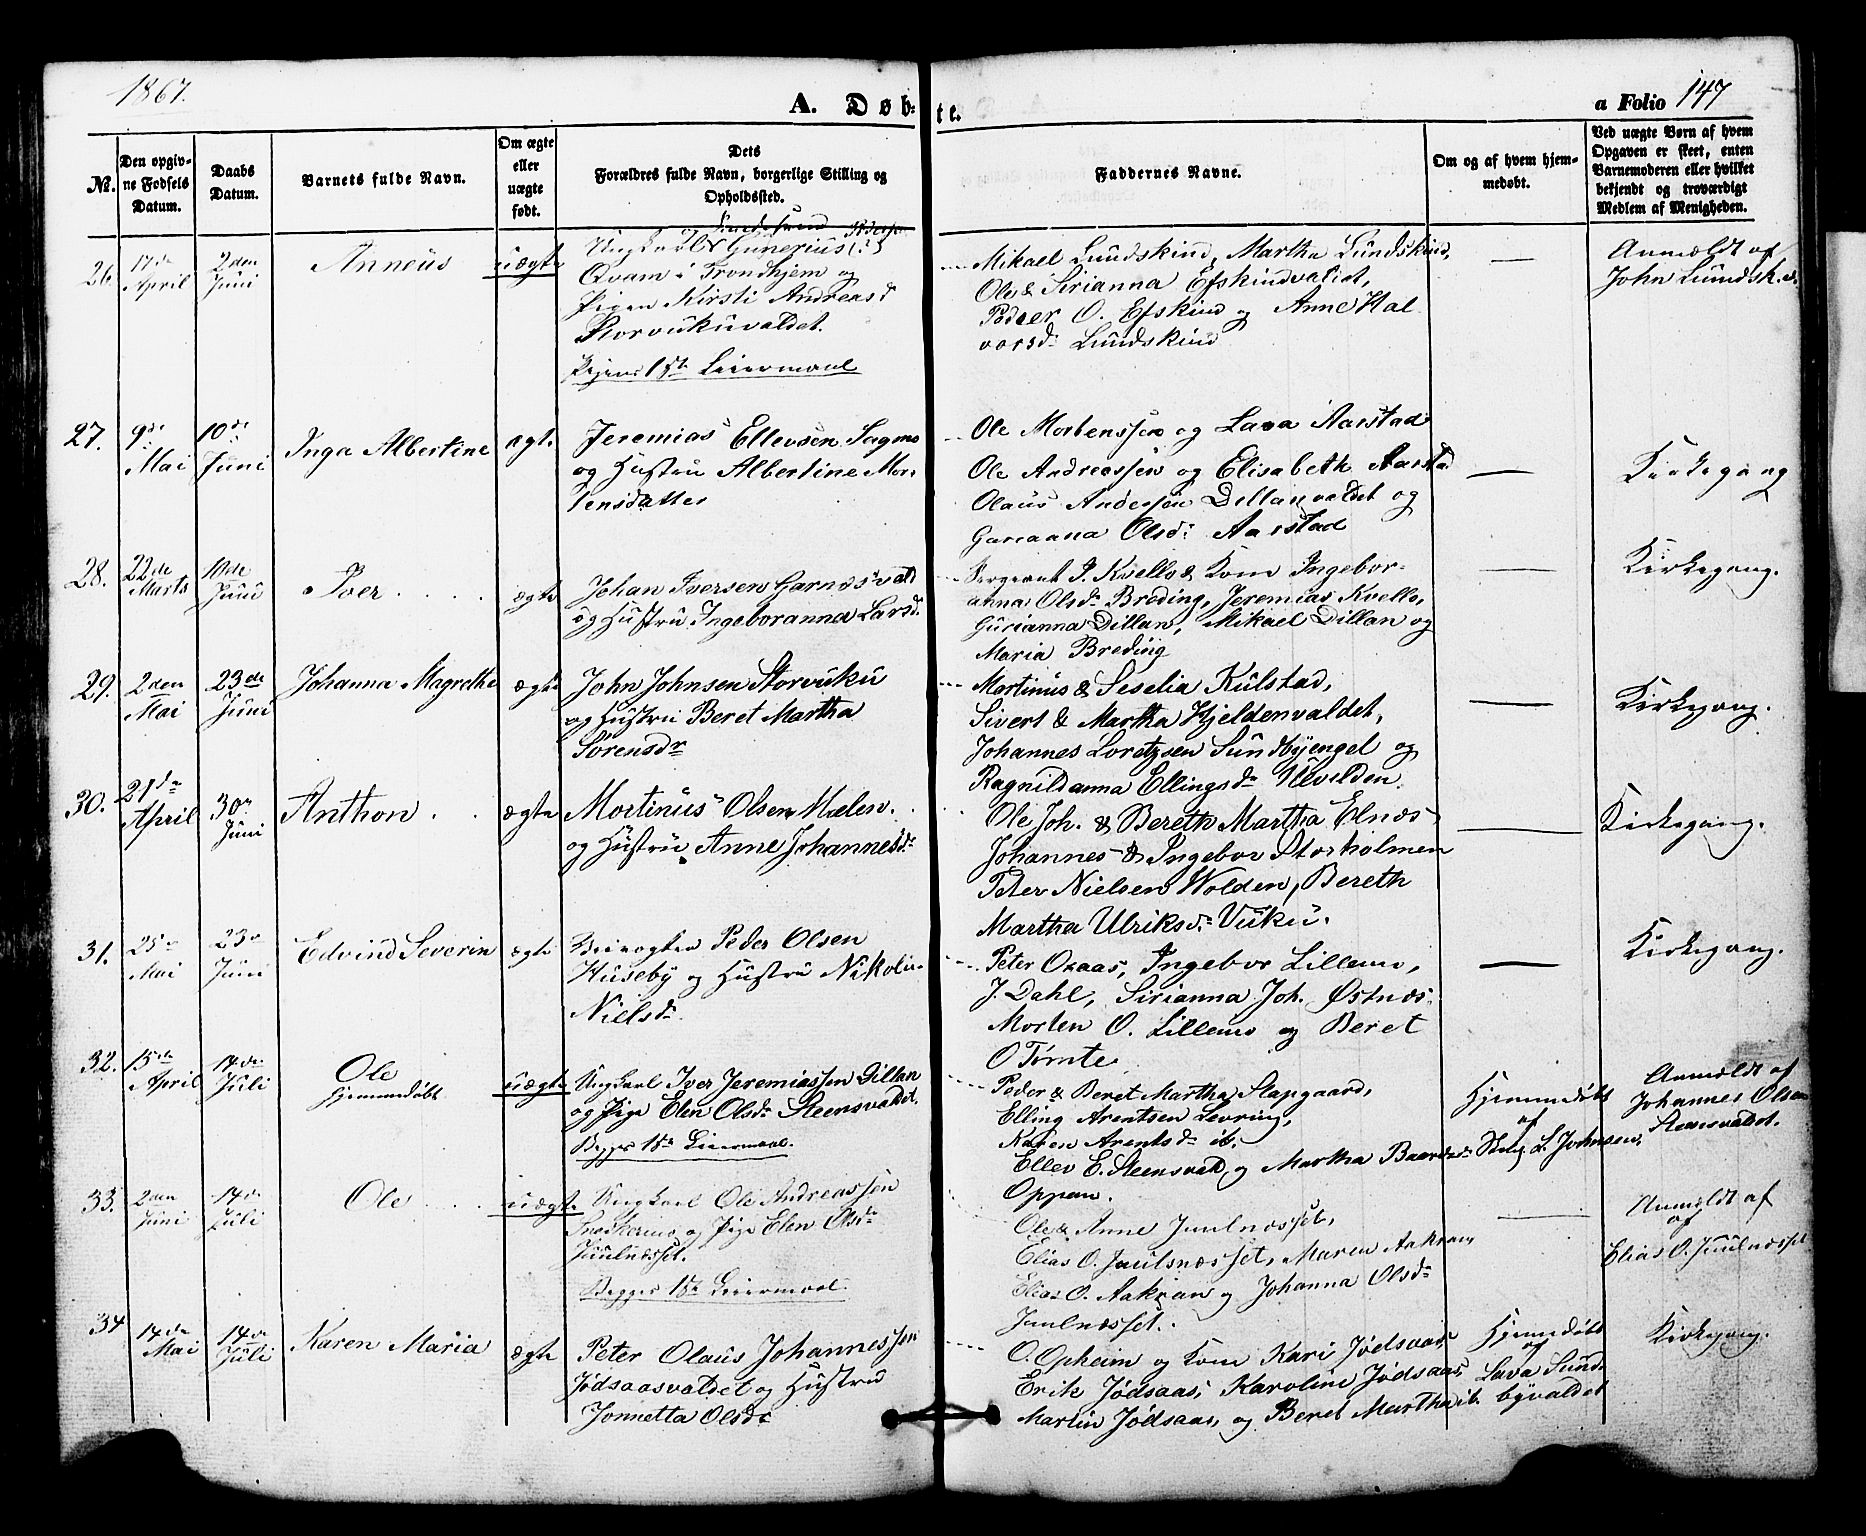 1867.
A. Døb: te.
a Folio 147
№.
Den opgiv-
ne Fødsels
Datum.
Daabs
Datum.
Barnets fulde Navn.
Om ægte
eller
uægte
født.
Dets
Forældres fulde Navn, borgerlige Stilling og
Opholdssted.
Faddernes Navne.
Om og af hvem hjem-
medøbt.
Ved uægte Børn af hvem
Opgaven er skeet, enten
Barnemoderen eller hvilket
bekjendt og troværdigt
Medlem af Menigheden.
26.
17de
April
2den
Juni
Anneus
uægte
Ungkarl Gunerius (?)
Qvam i Trondhjem og
Pigen Kirsti Andreasd
Storvukuvaldet.
Pigens 1ste Leiermaal
Mikael Lundskind, Martha Lundskind,
Ole & Sirianna Efskindvaldet,
Peder O. Efskind og Anne Hal
vorsdr Lundskind
—
Anmeldt af
John Lundsk.
27.
9de
Mai
10de
Juni
Inga Albertine
ægte
Jeremias Ellevsen Sagmo
og Hustru Albertine Mor-
tensdatter
Ole Mortenssen og Lava Aarstad
Ole Andreassen og Elisabeth Aarstad
Olaus Anderssen Dillanvaldet og
Gurianna Olsdr Aarstad
—
Kirkegang
28.
22de
Marts
10de
Juni
Iver
ægte
Johan Iversen Garnesvald
og Hustru Ingeboranna Larsd.
Sergeant P. Kvello & Kone Ingebor-
anna Olsdr Breding, Jeremias Kvello,
Gurianna Dillan, Mikael Dillan og
Maria Breding
—
Kirkegang.
29.
2den
Mai
23de
Juni
Johanna Magrethe
ægte
John Johnsen Storvuku
og Hustru Beret Martha
Sørensdr
Mortinus & Seselia Kulstad,
Sivert & Martha Hjeldenvaldet,
Johannes Loretzsen Sundbyengel og
Ragnildanna Ellingsdr Ulvilden.
—
Kirkegang.
30.
21de
April
30te
Juni
Anthon
ægte
Mortinus Olsen Mælen
og Hustru Anne Johannesdr
Ole Joh. & Bereth Martha Elnæs
Johannes & Ingebor Storholmen
Peter Nielsen Wolden, Bereth
Martha Ulriksdr Vuku.
—
Kirkegang.
31.
25de
Mai
23de
Juni
Edvind Severin
ægte
Peder Olsen
Huseby og Hustru Nikolin
Nielsdr
Peter Oxaas, Ingebor Lillemo,
J. Dahl, Sirianna Joh. Østnæs
Morten O. Lillemo og Beret
O Tømte
—
Kirkegang.
32.
15de
April
14de
Juli
Ole
Hjemmedøbt
uægte
Ungkarl Iver Jeremiassen Dillan
og Pige Elen Olsdr Steensvaldet.
Begges 1ste Leiermaal.
Peder & Beret Martha Slapgaard,
Elling Arentsen Levring,
Karen Arentsdr ib,
Ellev E. Steensvald og Martha Baardsdr
Oppem.
Hjemmedøbt
af
L. Johnsen,
Anmeldt af
Johannes Olsen
Steensvaldet.
33.
2den
Juni
14de
Juli
Ole
uægte
Ungkarl Ole Andreassen
og Pige Elen Olsdr
Juulnæsset.
Begges 1ste Leiermaal.
Ole & Anne Juulnæsset,
Elias O. Juulsnæsset, Maren Aakran,
Elias O. Aakran og Johanna Olsdr
Juulnæsset.
—
Anmeldt af
af
Elias O. Juulnæsset
34
14de
Mai
14de
Juli
Karen Maria
ægte
Peter Olaus Johannessen
Jødsaasvaldet og Hustru
Jonnetta Olsdr
O. Opheim og Kone Kari Jødsaas,
Erik Jødsaas, Karoline Jødsaas,
Martin Jødsaas, og Beret Martha ib.
Hjemmedøbt
og
Lava Sund-
byvaldet
Kirkegang.